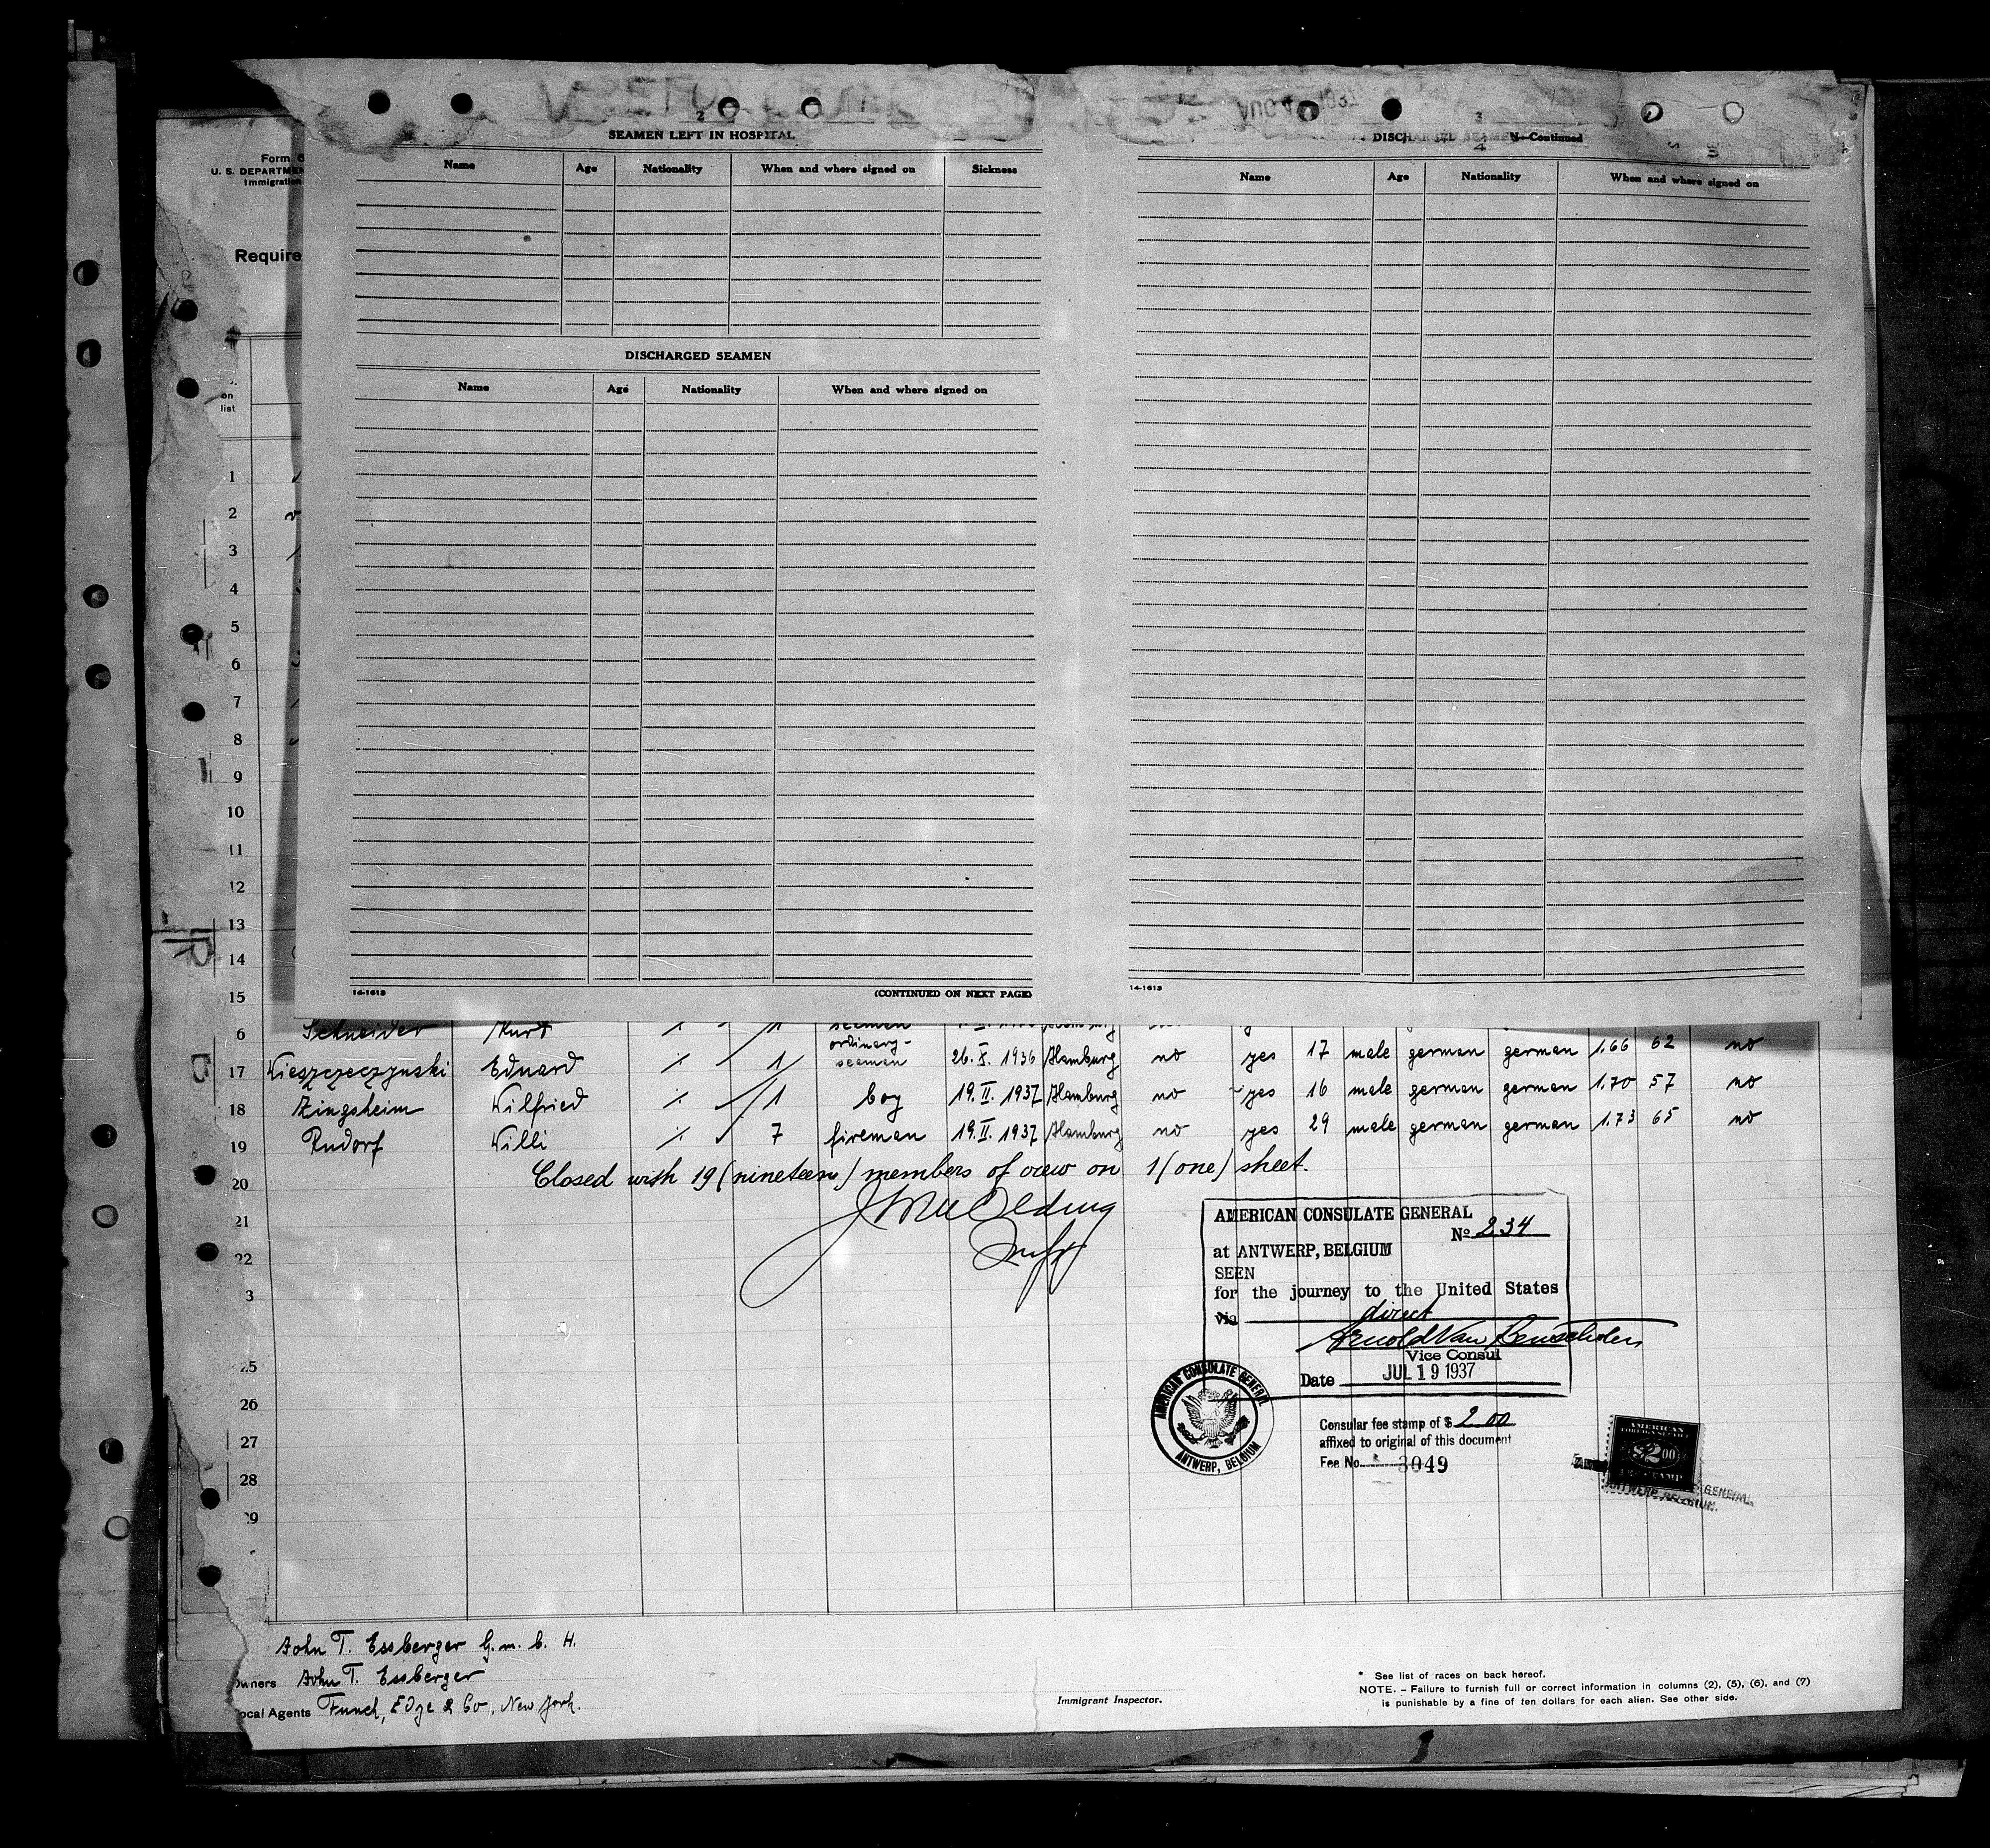 AUG 1937
Form
U. S. DEPARTME
Immigration
Require
on
list
2
SEAMEN LEFT IN HOSPITAL
Name Age Nationality When and where signed on Sickness
DISCHARGED SEAMEN
Name Age Nationality When and where signed on
14-1613 (CONTINUED ON NEXT PAGE)
3
DISCHARGED SEAMEN—Continued
4
Name Age Nationality When and where signed on
14-1613
1
2
3
4
5
6
7
8
9
10
11
12
13
14
15
6 Schneider Kurt
17 Wieszczeczynski Eduard 1 ordinary-seamen 26. X. 1936 Hamburg no yes 17 male german german 1.66 62 no
18 Zingsheim Wilfried 1 boy 19. II. 1937 Hamburg no yes 16 male german german 1.70 57 no
19 Rudorf Willi 7 fireman 19. II. 1937 Hamburg no yes 29 male german german 1.73 65 no
20 Closed with 19 (nineteen) members of crew on 1 (one) sheet.
21
22
3
25
26
27
28
29
AMERICAN CONSULATE GENERAL
No 234
at ANTWERP, BELGIUM
SEEN
for the journey to the United States
via direct
Arnold Van Benschoten
Vice Consul
Date JUL 19 1937
AMERICAN CONSULATE GENERAL
ANTWERP, BELGIUM
Consular fee stamp of $ 2.00
affixed to original of this document
Fee No. 3049
AMERICAN
$2.00
FEE STAMP
GENERAL
ANTWERP, BELGIUM.
John T. Essberger G.m.b.H.
Owners John T. Essberger
ocal Agents Funch, Edye & Co, New York.
Immigrant Inspector.
* See list of races on back hereof.
NOTE. – Failure to furnish full or correct information in columns (2), (5), (6), and (7)
is punishable by a fine of ten dollars for each alien. See other side.